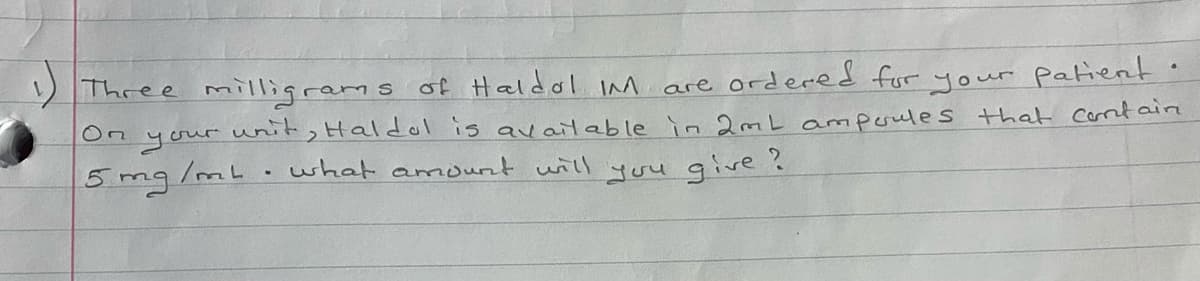 1) Three milligrams of Haldol IM are ordered for your patient.
On your unit, Haldol is available in 2mL ampoules that contain
5 mg/mL. what amount will you give?